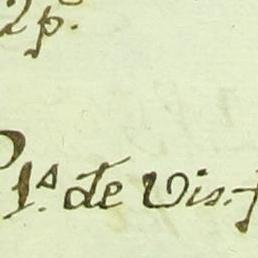 2 p.
1ª de Vis.